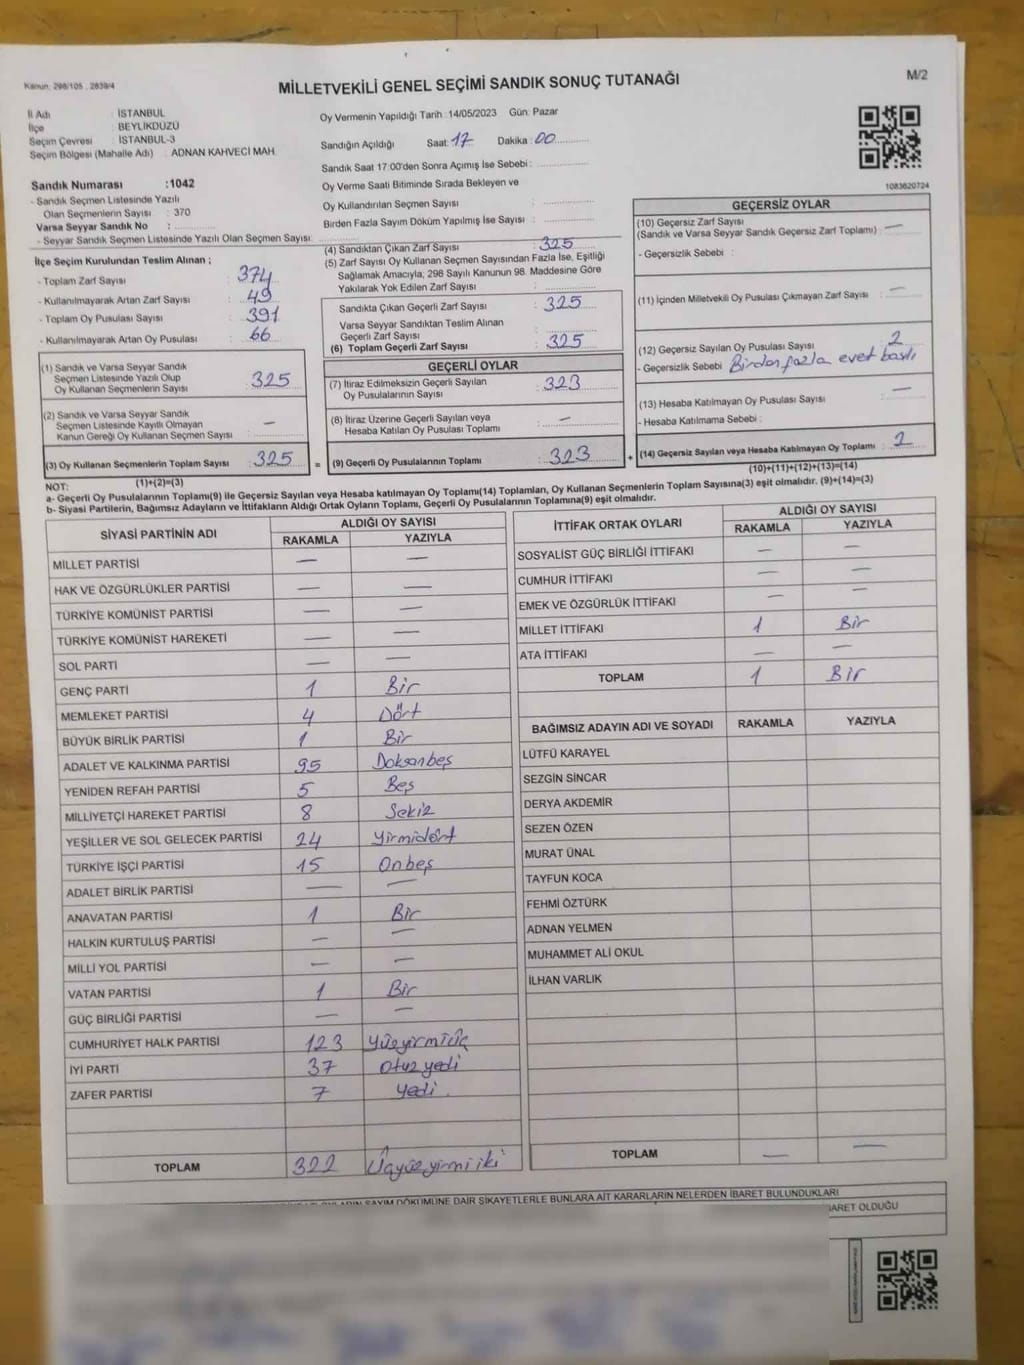 Kanun: 298/105 , 2839/4
MİLLETVEKİLİ GENEL SEÇİMİ SANDIK SONUÇ TUTANAĞI
M/2
İl Adı : İSTANBUL
İlçe : BEYLİKDÜZÜ
Seçim Çevresi : İSTANBUL-3
Seçim Bölgesi (Mahalle Adı) : ADNAN KAHVECİ MAH.
Sandık Numarası :1042
- Sandık Seçmen Listesinde Yazılı
Olan Seçmenlerin Sayısı : 370
Varsa Seyyar Sandık No :
- Seyyar Sandık Seçmen Listesinde Yazılı Olan Seçmen Sayısı:
Oy Vermenin Yapıldığı Tarih :14/05/2023 Gün: Pazar
Sandığın Açıldığı Saat: 17 Dakika : 00
Sandık Saat 17:00'den Sonra Açımış İse Sebebi :
Oy Verme Saati Bitiminde Sırada Bekleyen ve
Oy Kullandırılan Seçmen Sayısı :
Birden Fazla Sayım Döküm Yapılmış İse Sayısı :
1083620724
İlçe Seçim Kurulundan Teslim Alınan ;
- Toplam Zarf Sayısı : 374
- Kullanılmayarak Artan Zarf Sayısı : 49
- Toplam Oy Pusulası Sayısı : 391
- Kullanılmayarak Artan Oy Pusulası : 66
(1) Sandık ve Varsa Seyyar Sandık
Seçmen Listesinde Yazılı Olup
Oy Kullanan Seçmenlerin Sayısı : 325
(2) Sandık ve Varsa Seyyar Sandık
Seçmen Listesinde Kayıtlı Olmayan
Kanun Gereği Oy Kullanan Seçmen Sayısı : —
(3) Oy Kullanan Seçmenlerin Toplam Sayısı : 325
(1)+(2)=(3)
(4) Sandıktan Çıkan Zarf Sayısı : 325
(5) Zarf Sayısı Oy Kullanan Seçmen Sayısından Fazla İse, Eşitliği
Sağlamak Amacıyla; 298 Sayılı Kanunun 98. Maddesine Göre
Yakılarak Yok Edilen Zarf Sayısı :
Sandıkta Çıkan Geçerli Zarf Sayısı : 325
Varsa Seyyar Sandıktan Teslim Alınan
Geçerli Zarf Sayısı :
(6) Toplam Geçerli Zarf Sayısı : 325
GEÇERLİ OYLAR
(7) İtiraz Edilmeksizin Geçerli Sayılan
Oy Pusulalarının Sayısı : 323
(8) İtiraz Üzerine Geçerli Sayılan veya
Hesaba Katılan Oy Pusulası Toplamı : —
= (9) Geçerli Oy Pusulalarının Toplamı : 323
GEÇERSİZ OYLAR
(10) Geçersiz Zarf Sayısı
(Sandık ve Varsa Seyyar Sandık Geçersiz Zarf Toplamı) : —
- Geçersizlik Sebebi :
(11) İçinden Milletvekili Oy Pusulası Çıkmayan Zarf Sayısı : —
(12) Geçersiz Sayılan Oy Pusulası Sayısı : 2
- Geçersizlik Sebebi : Birden fazla evet basılı
(13) Hesaba Katılmayan Oy Pusulası Sayısı : —
- Hesaba Katılmama Sebebi :
+ (14) Geçersiz Sayılan veya Hesaba Katılmayan Oy Toplamı : 2
(10)+(11)+(12)+(13)=(14)
NOT:
a- Geçerli Oy Pusulalarının Toplamı(9) ile Geçersiz Sayılan veya Hesaba katılmayan Oy Toplamı(14) Toplamları, Oy Kullanan Seçmenlerin Toplam Sayısına(3) eşit olmalıdır. (9)+(14)=(3)
b- Siyasi Partilerin, Bağımsız Adayların ve İttifakların Aldığı Ortak Oyların Toplamı, Geçerli Oy Pusulalarının Toplamına(9) eşit olmalıdır.
SİYASİ PARTİNİN ADI ALDIĞI OY SAYISI
RAKAMLA YAZIYLA
MİLLET PARTİSİ — —
HAK VE ÖZGÜRLÜKLER PARTİSİ — —
TÜRKİYE KOMÜNİST PARTİSİ — —
TÜRKİYE KOMÜNİST HAREKETİ — —
SOL PARTİ — —
GENÇ PARTİ 1 Bir
MEMLEKET PARTİSİ 4 Dört
BÜYÜK BİRLİK PARTİSİ 1 Bir
ADALET VE KALKINMA PARTİSİ 95 Doksanbeş
YENİDEN REFAH PARTİSİ 5 Beş
MİLLİYETÇİ HAREKET PARTİSİ 8 Sekiz
YEŞİLLER VE SOL GELECEK PARTİSİ 24 Yirmidört
TÜRKİYE İŞÇİ PARTİSİ 15 Onbeş
ADALET BİRLİK PARTİSİ — —
ANAVATAN PARTİSİ 1 Bir
HALKIN KURTULUŞ PARTİSİ — —
MİLLİ YOL PARTİSİ — —
VATAN PARTİSİ 1 Bir
GÜÇ BİRLİĞİ PARTİSİ — —
CUMHURİYET HALK PARTİSİ 123 Yüzyirmiüç
İYİ PARTİ 37 Otuzyedi
ZAFER PARTİSİ 7 Yedi
TOPLAM 322 Üçyüzyirmiiki
İTTİFAK ORTAK OYLARI ALDIĞI OY SAYISI
RAKAMLA YAZIYLA
SOSYALİST GÜÇ BİRLİĞİ İTTİFAKI — —
CUMHUR İTTİFAKI — —
EMEK VE ÖZGÜRLÜK İTTİFAKI — —
MİLLET İTTİFAKI 1 Bir
ATA İTTİFAKI — —
TOPLAM 1 Bir
BAĞIMSIZ ADAYIN ADI VE SOYADI RAKAMLA YAZIYLA
LÜTFÜ KARAYEL
SEZGİN SİNCAR
DERYA AKDEMİR
SEZEN ÖZEN
MURAT ÜNAL
TAYFUN KOCA
FEHMİ ÖZTÜRK
ADNAN YELMEN
MUHAMMET ALİ OKUL
İLHAN VARLIK
TOPLAM — —
SAYIM DÖKÜMÜNE DAİR ŞİKAYETLERLE BUNLARA AİT KARARLARIN NELERDEN İBARET BULUNDUKLARI
İBARET OLDUĞU